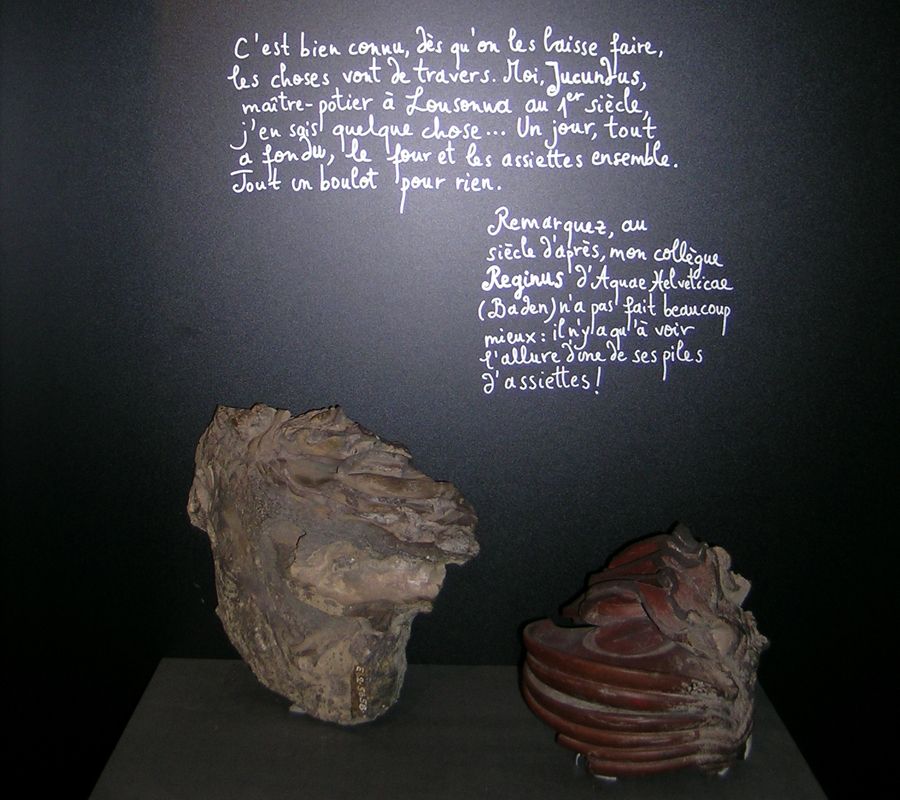 C'est bien connu, dès qu'on les laisse faire,
les choses vont de travers. Moi, Jucundus,
maître-potier à Lousonna au 1er siècle,
j'en sais quelque chose... Un jour, tout
a fondu, le four et les assiettes ensemble.
Tout un boulot pour rien.
Remarquez, au
siècle d'après, mon collègue
Reginus d'Aquae Helveticae
(Baden) n'a pas fait beaucoup
mieux : il n'y a qu'à voir
l'allure d'une de ses piles
d'assiettes !